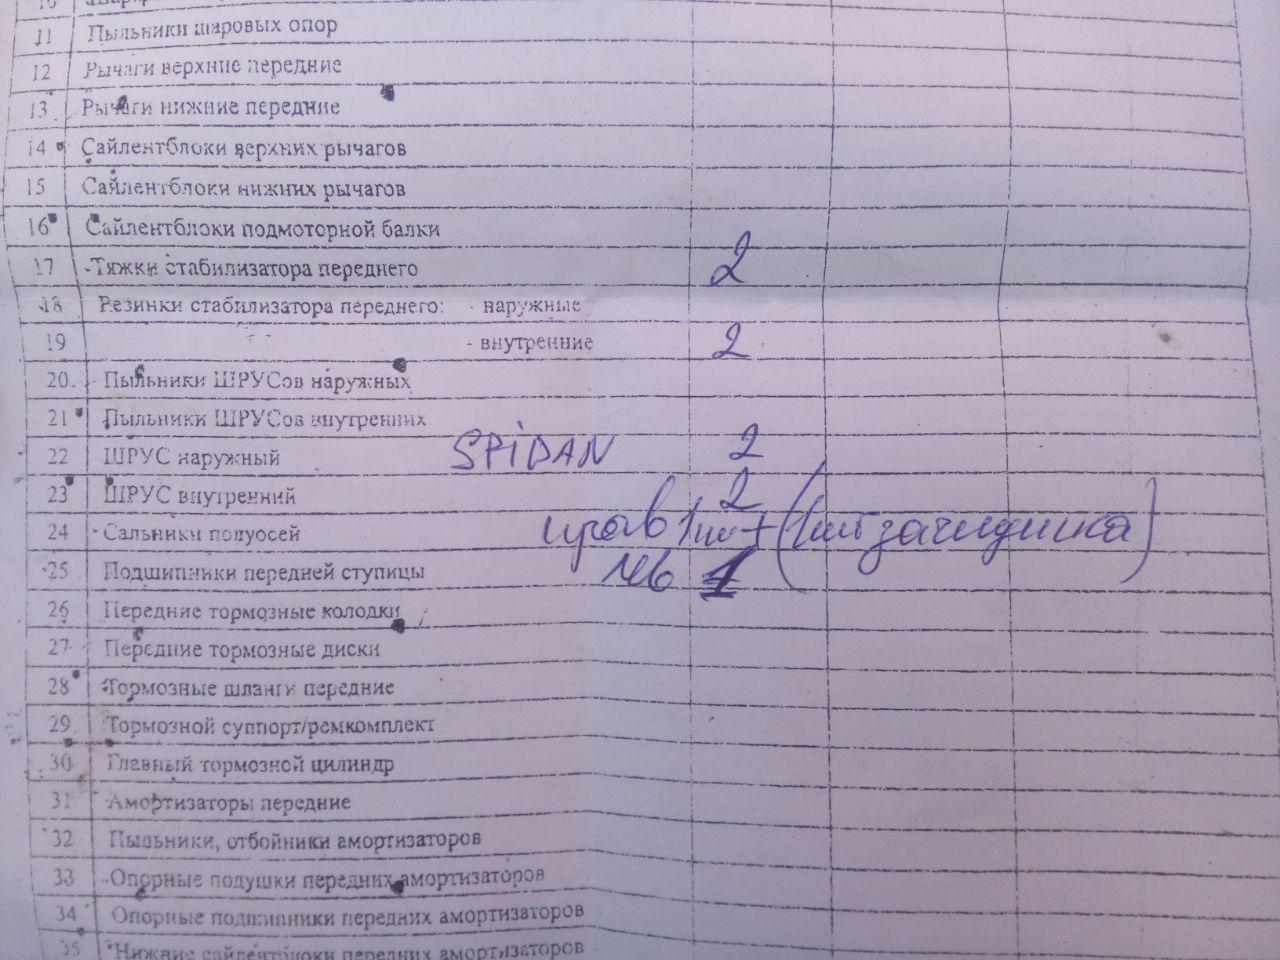 10
11 Пыльники шаровых опор
12 Рычаги верхние передние
13 Рычаги нижние передние
14 Сайлентблоки верхних рычагов
15 Сайлентблоки нижних рычагов
16 Сайлентблоки подмоторной балки
17 Тяжки стабилизатора переднего 2
18 Резинки стабилизатора переднего: - наружные
19 - внутренние 2
20. Пыльники ШРУСов наружных
21 Пыльники ШРУСов внутренних
22 ШРУС наружный SPiDAN 2
23 ШРУС внутренний 2
24 Сальники полуосей прав 1шт + (1шт
25 Подшипники передней ступицы лев 1
26 Передние тормозные колодки
27 Передние тормозные диски
28 Тормозные шланги передние
29 Тормозной суппорт/ремкомплект
30 Главный тормозной цилиндр
31 Амортизаторы передние
32 Пыльники, отбойники амортизаторов
33 Опорные подушки передних амортизаторов
34 Опорные подшипники передних амортизаторов
35 Нижние сайлентблоки передних амортизаторов